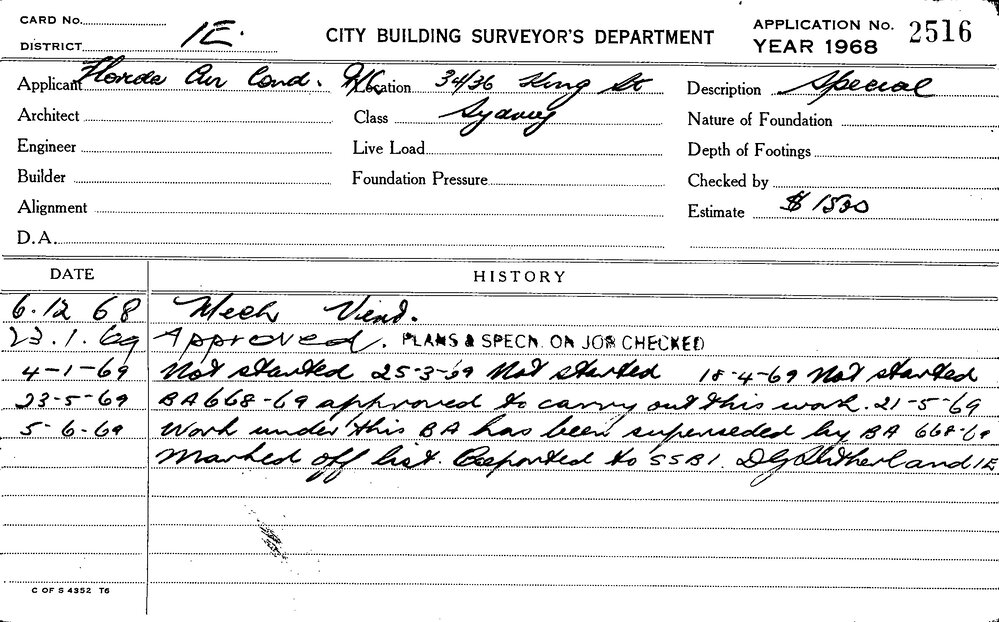 CARD No.
DISTRICT 1E.
CITY BUILDING SURVEYOR'S DEPARTMENT
APPLICATION No. 2516
YEAR 1968
Applicant Florida Air Cond. Location 34/36 King St Description Special
Architect Class Sydney Nature of Foundation
Engineer Live Load Depth of Footings
Builder Foundation Pressure Checked by
Alignment Estimate $1530
D.A.
DATE HISTORY
6.12 68 Mech Vent.
23.1.69 Approved. PLANS & SPECN. ON JOB CHECKED
4-1-69 Not started 25-3-69 Not started 18-4-69 Not started
23-5-69 BA 668-69 approved to carry out this work. 21-5-69
5-6-69 Work under this BA has been superseded by BA 668-69
Marked off list. Reported to SSBI. DG Sutherland 1E
C OF S 4352 T6